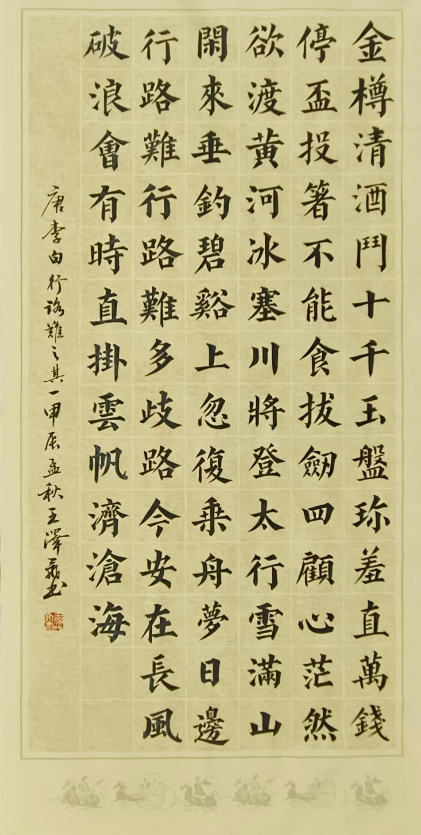 金樽清酒鬥十千玉盤珎羞直萬錢
停盃投箸不能食拔劒四顧心茫然
欲渡黄河冰塞川將登太行雪滿山
閑來垂釣碧谿上忽復乗舟夢日邊
行路難行路難多歧路今安在長風
破浪會有時直掛雲帆濟滄海
唐李白行路難之其一甲辰孟秋王澤書